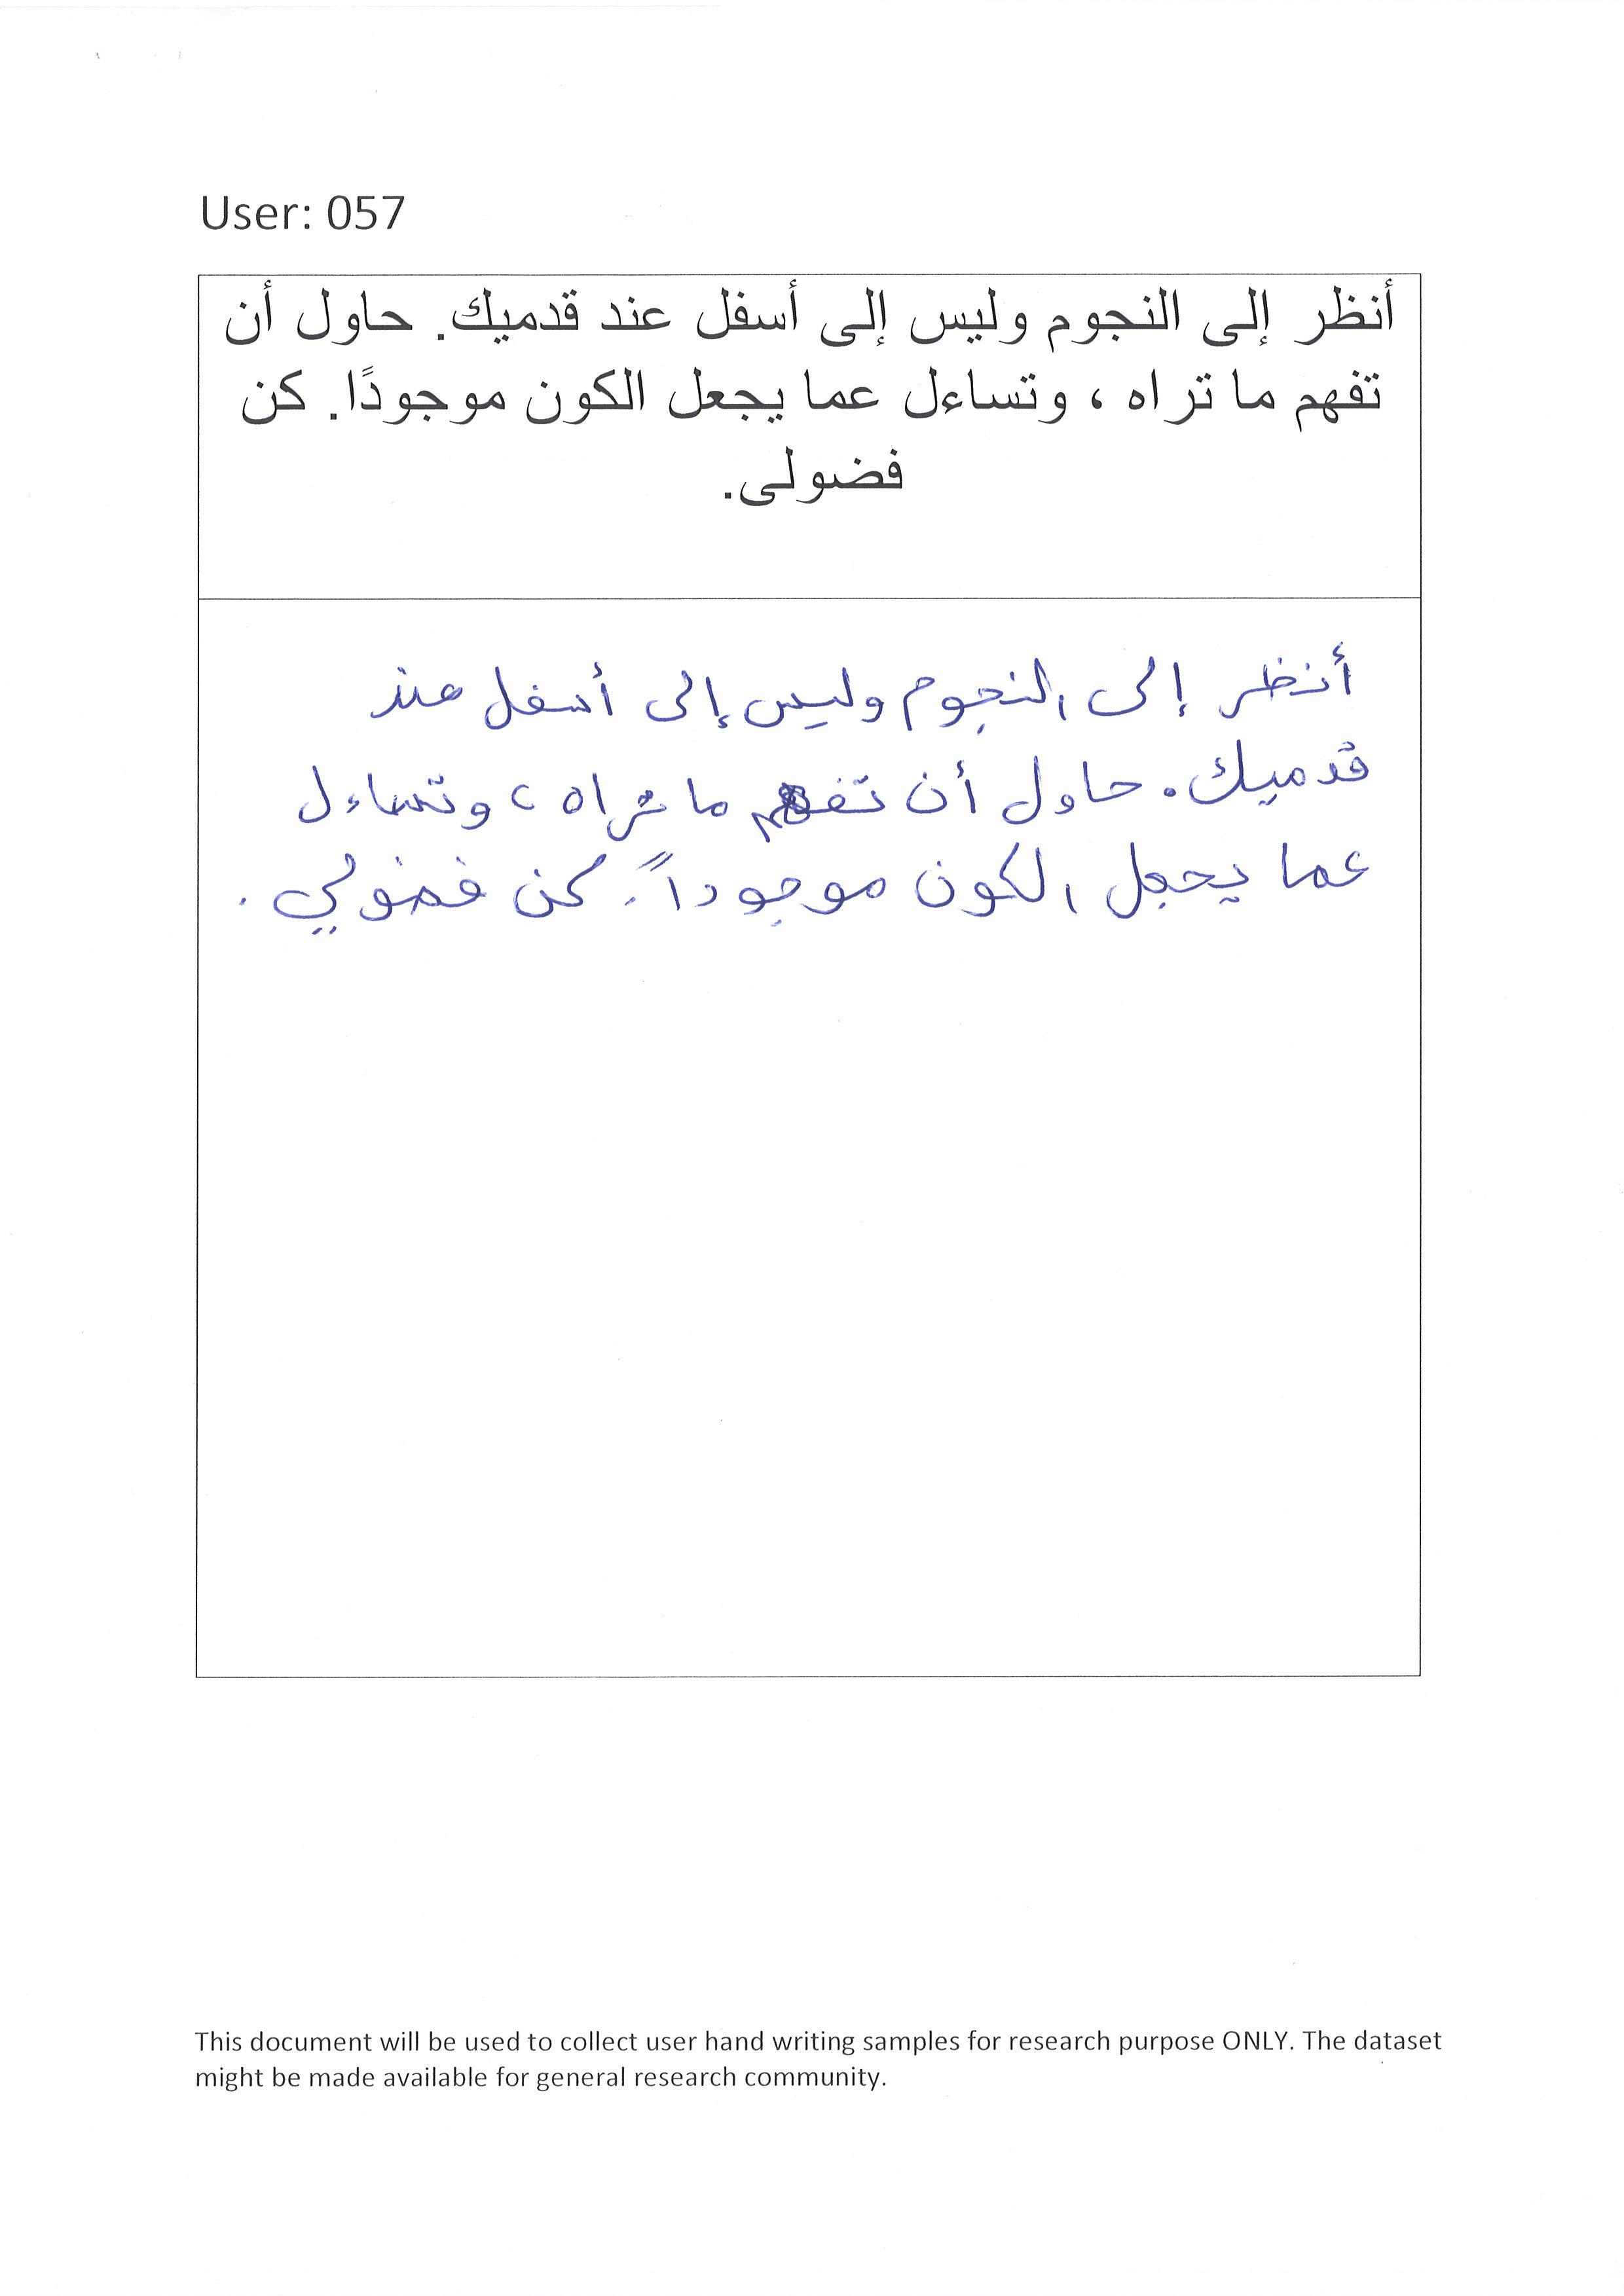 User: 057
أنظر إلى النجوم وليس إلى أسفل عند قدميك. حاول أن
تفهم ما تراه ، وتساءل عما يجعل الكون موجودًا. كن
فضولى.
أنظر إلى النجوم وليس إلى أسفل عند
قدميك. حاول أن تفهم ما تراه ، وتساءل
عما يجعل الكون موجوداً. كن فضولي .
This document will be used to collect user hand writing samples for research purpose ONLY. The dataset
might be made available for general research community.